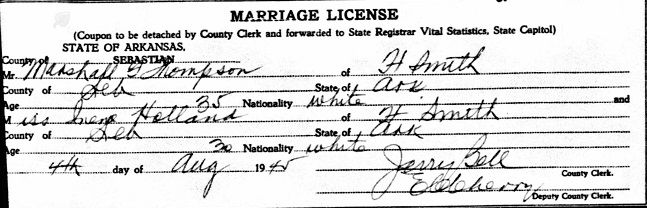 MARRIAGE LICENSE
(Coupon to be detached by County Clerk and forwarded to State Registrar Vital Statistics, State Capitol)
STATE OF ARKANSAS,
County of SEBASTIAN
Mr. Marshall Thompson of Ft Smith
County of Seb State of Ark
Age 35 Nationality white and
Miss Holland of Ft Smith
County of Seb State of Ark
Age 30 Nationality white
4th day of Aug 1945 Jarris Bell County Clerk.
Deputy County Clerk.